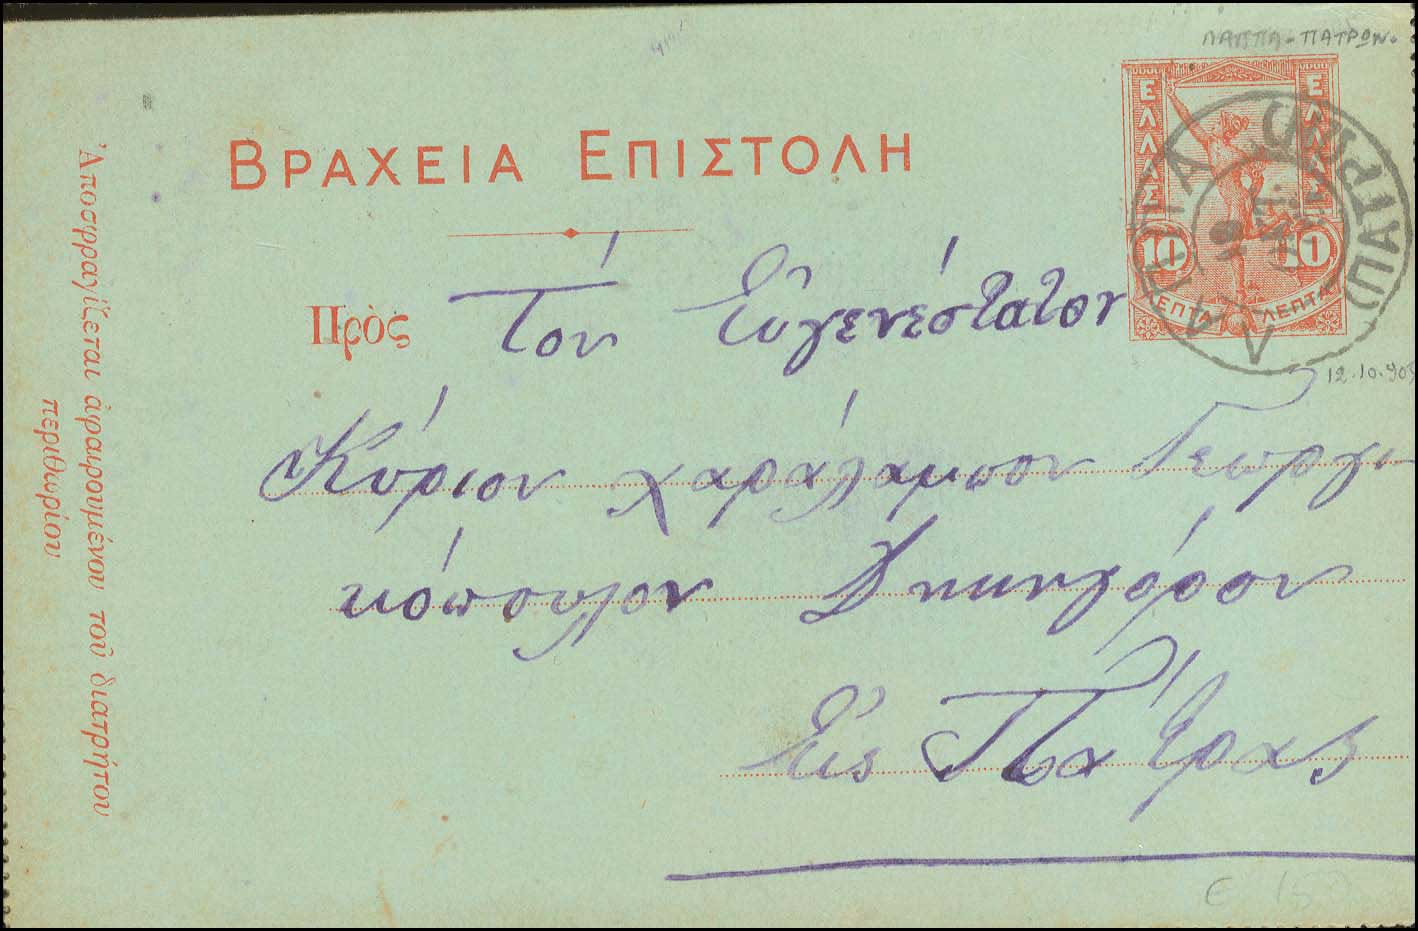 ΛΑΠΠΑ - ΠΑΤΡΩΝ.
ΒΡΑΧΕΙΑ ΕΠΙΣΤΟΛΗ
ΕΛΛΑΣ ΕΛΛΑΣ
10 10
ΛΕΠΤΑ ΛΕΠΤΑ
ΛΑΠΠΑ (ΠΑΤΡΩΝ)
Πρὸς Τόν Εὐγενέστατον
12.10.905
Κύριον Χαράλαμπον Γεωργι
κόπουλον Δικηγόρον
Εἰς Πάτρας
Ἀποσφραγίζεται ἀφαιρουμένου τοῦ διατρήτου
περιθωρίου